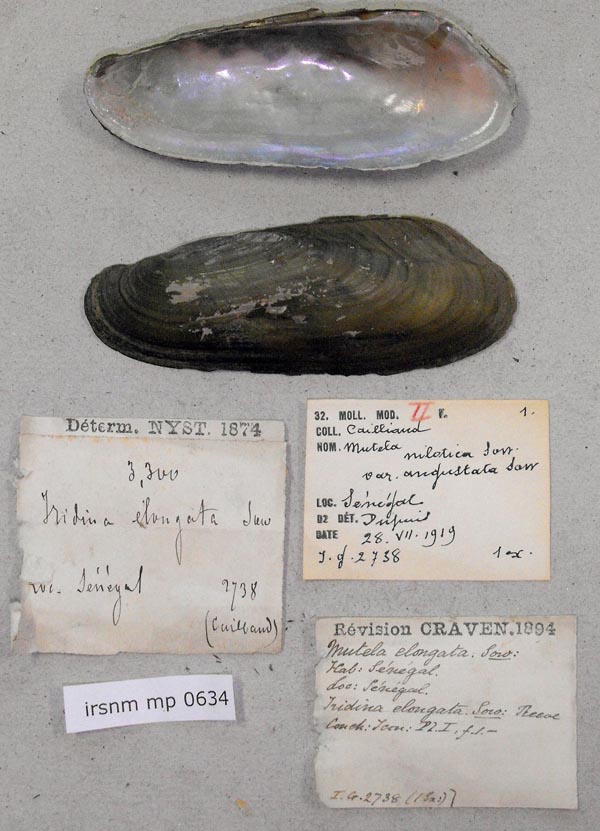 Déterm. NYST. 1874
3,300
Iridina élongata Sow
Sénégal 2738
(Cailliaud)
irsnm mp 0634
32. MOLL. MOD. II V. 1.
COLL. Cailliaud
NOM. Mutela nilotica Sow.
var. angustata Sow
LOC. Sénégal
D2 DÉT. Dupuis
DATE 28. VII. 1919
I. g. 2738 1 ex.
Révision CRAVEN.1894
Mutela elongata. Sow:
Hab: Sénégal.
Loc: Sénégal.
Iridina elongata. Sow: Reeve
Conch: Icon: Pl. I. f. 1.-
I. G. 2738 (1 Ex:)